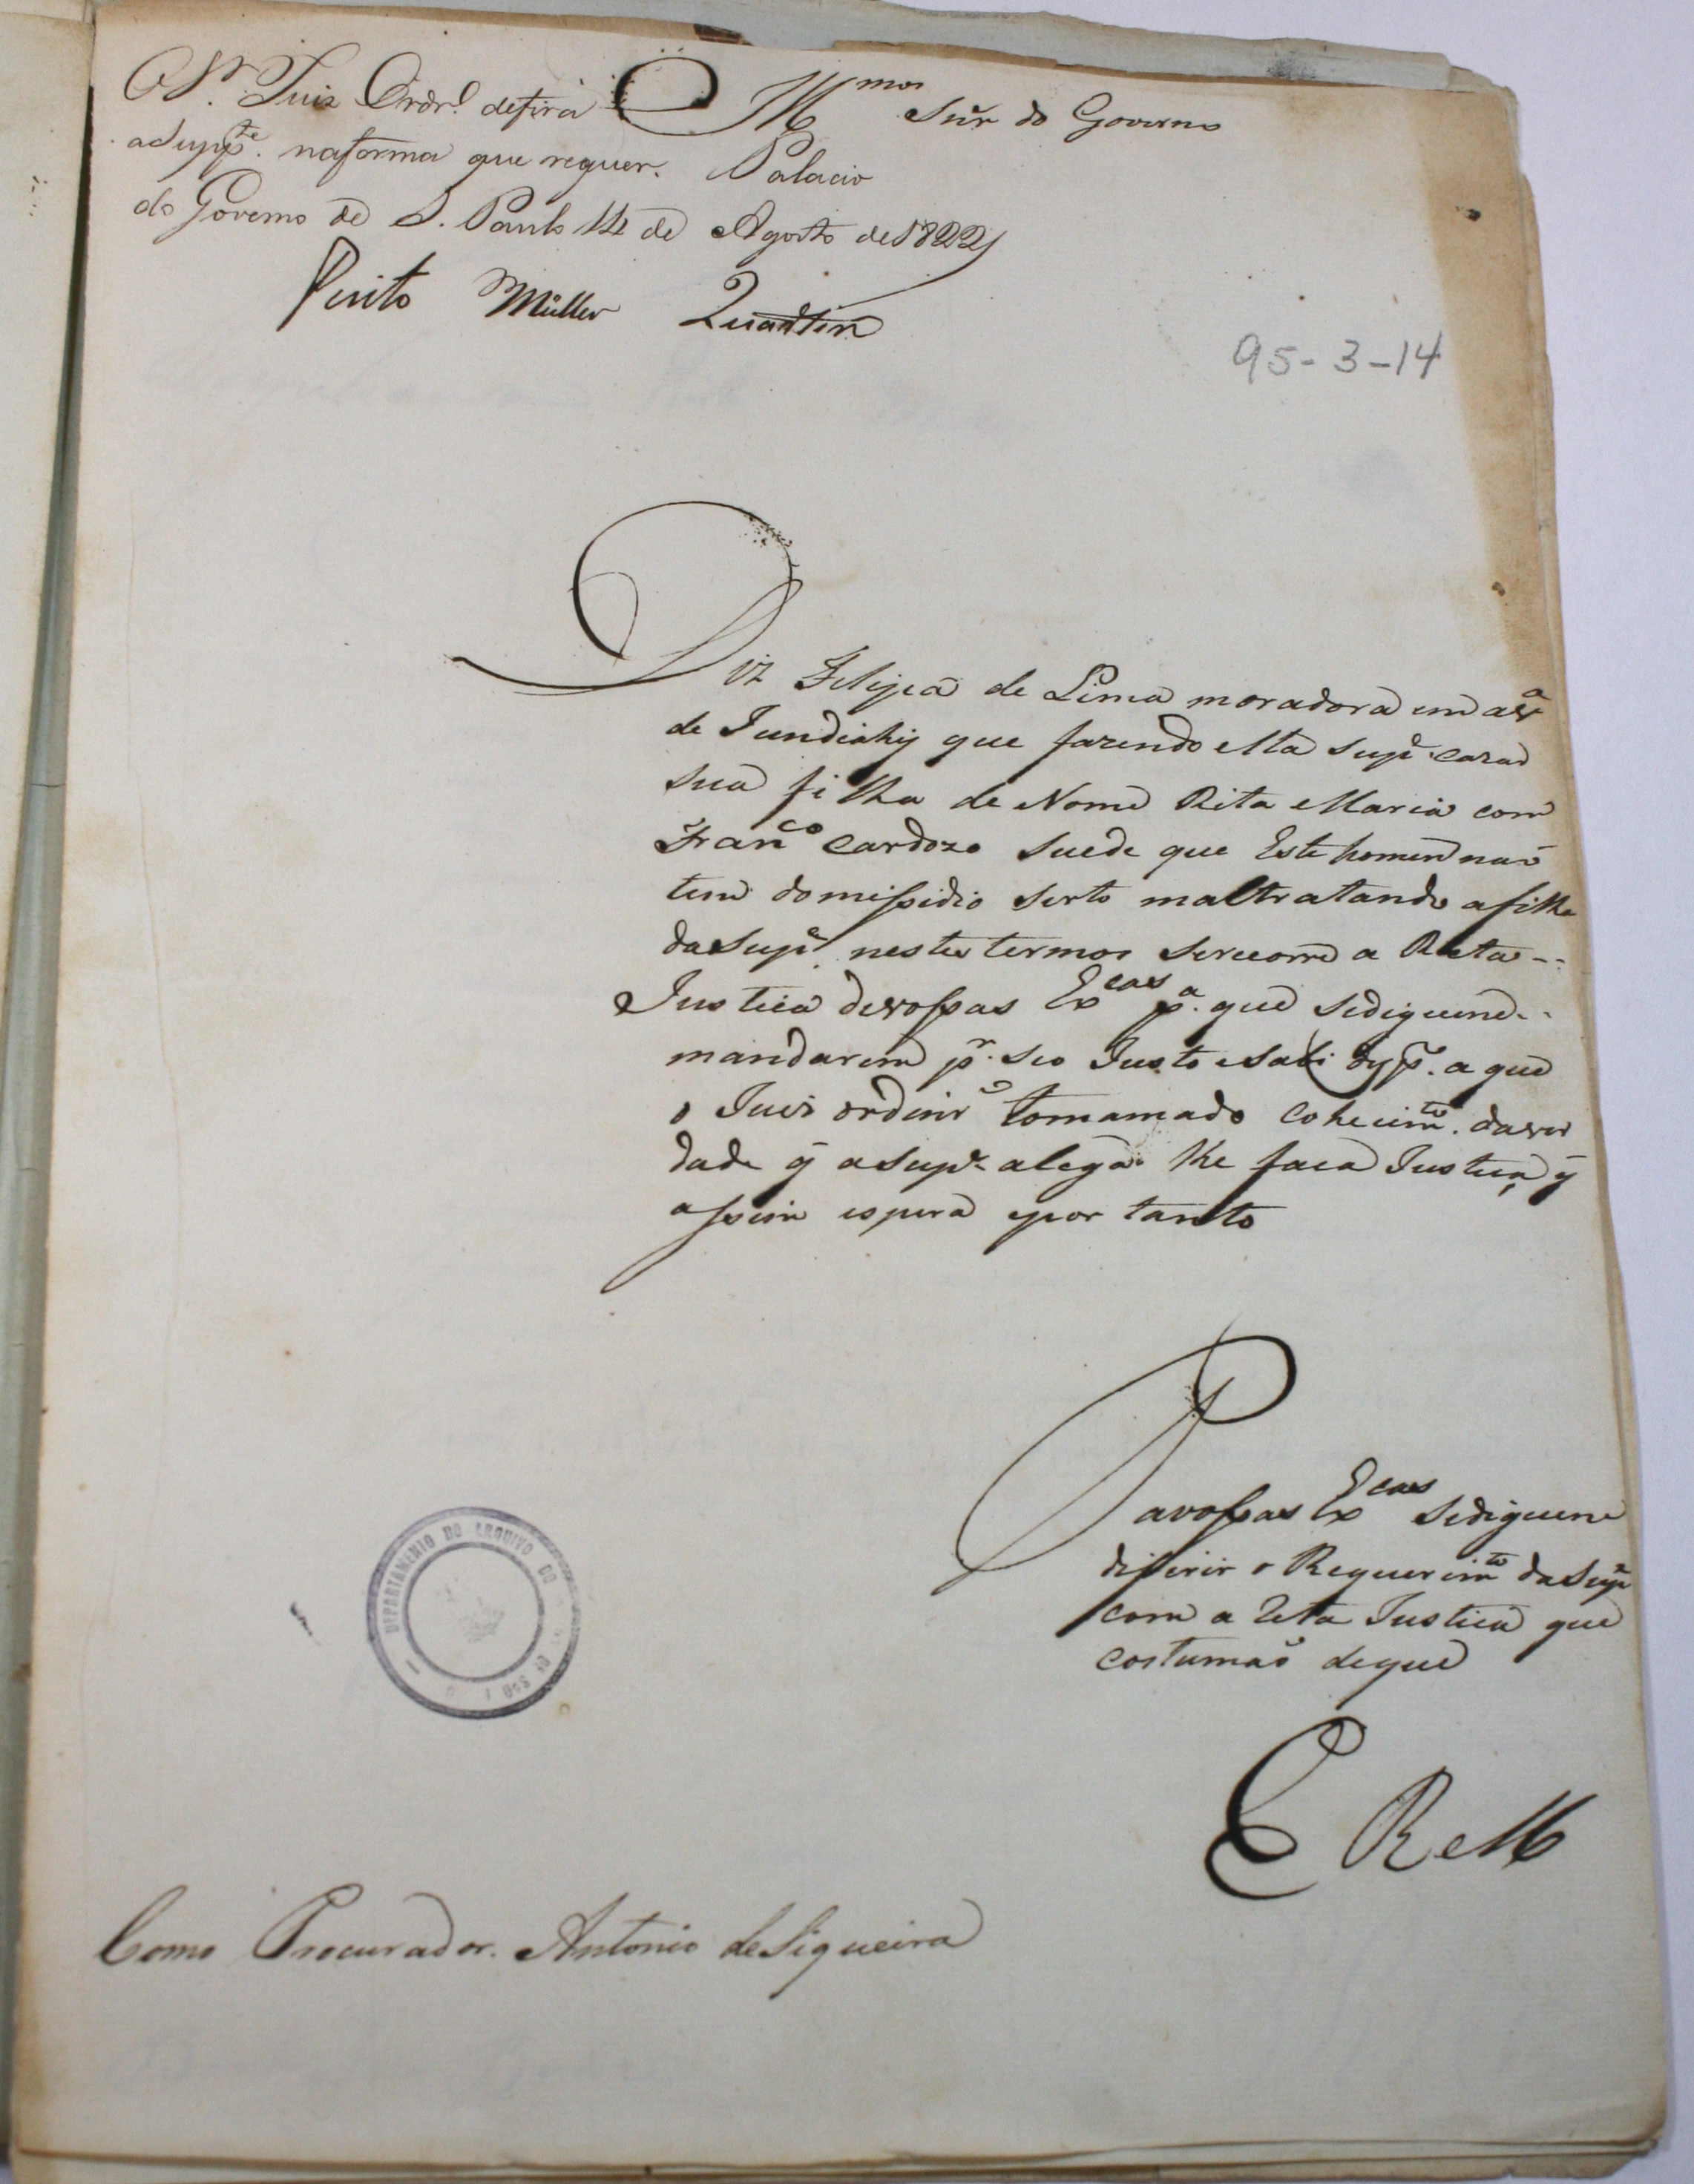 O Sr. Juiz Ordr.º defira
a Supp.te na forma que requer. Palacio
do Governo de S. Paulo 14 de Agosto de 1822
Pinto Müller Quartim
Snr do Governo
95-3-14
Diz Felipa de Lima moradora em a V.ª
de Jundiahy que fazendo ella Supe. cazar
sua filha de Nome Rita Maria com
Franco Cardozo Suede que Este homem naõ
tem domissidio Serto maltratando a filha
da Supe. nestes termos Se recorre a Reta --
Justica de vossas Excas pª. que Se diguem --
mandarem pr. Seo Justo e Sabi a que
o Juis ordinrº tomamado Cohecimto. da ver
dade q̃ a Supe. alega lhe faca Justica, q̃
assim espera e por tanto
P a vossas Excas Se diguem
difirir o Requerimto da Supe
com a reta Justica que
costumaõ de que
E R M
Como Procurador. Antonio de Siqueira
DEPARTAMENTO DO ARQUIVO DO